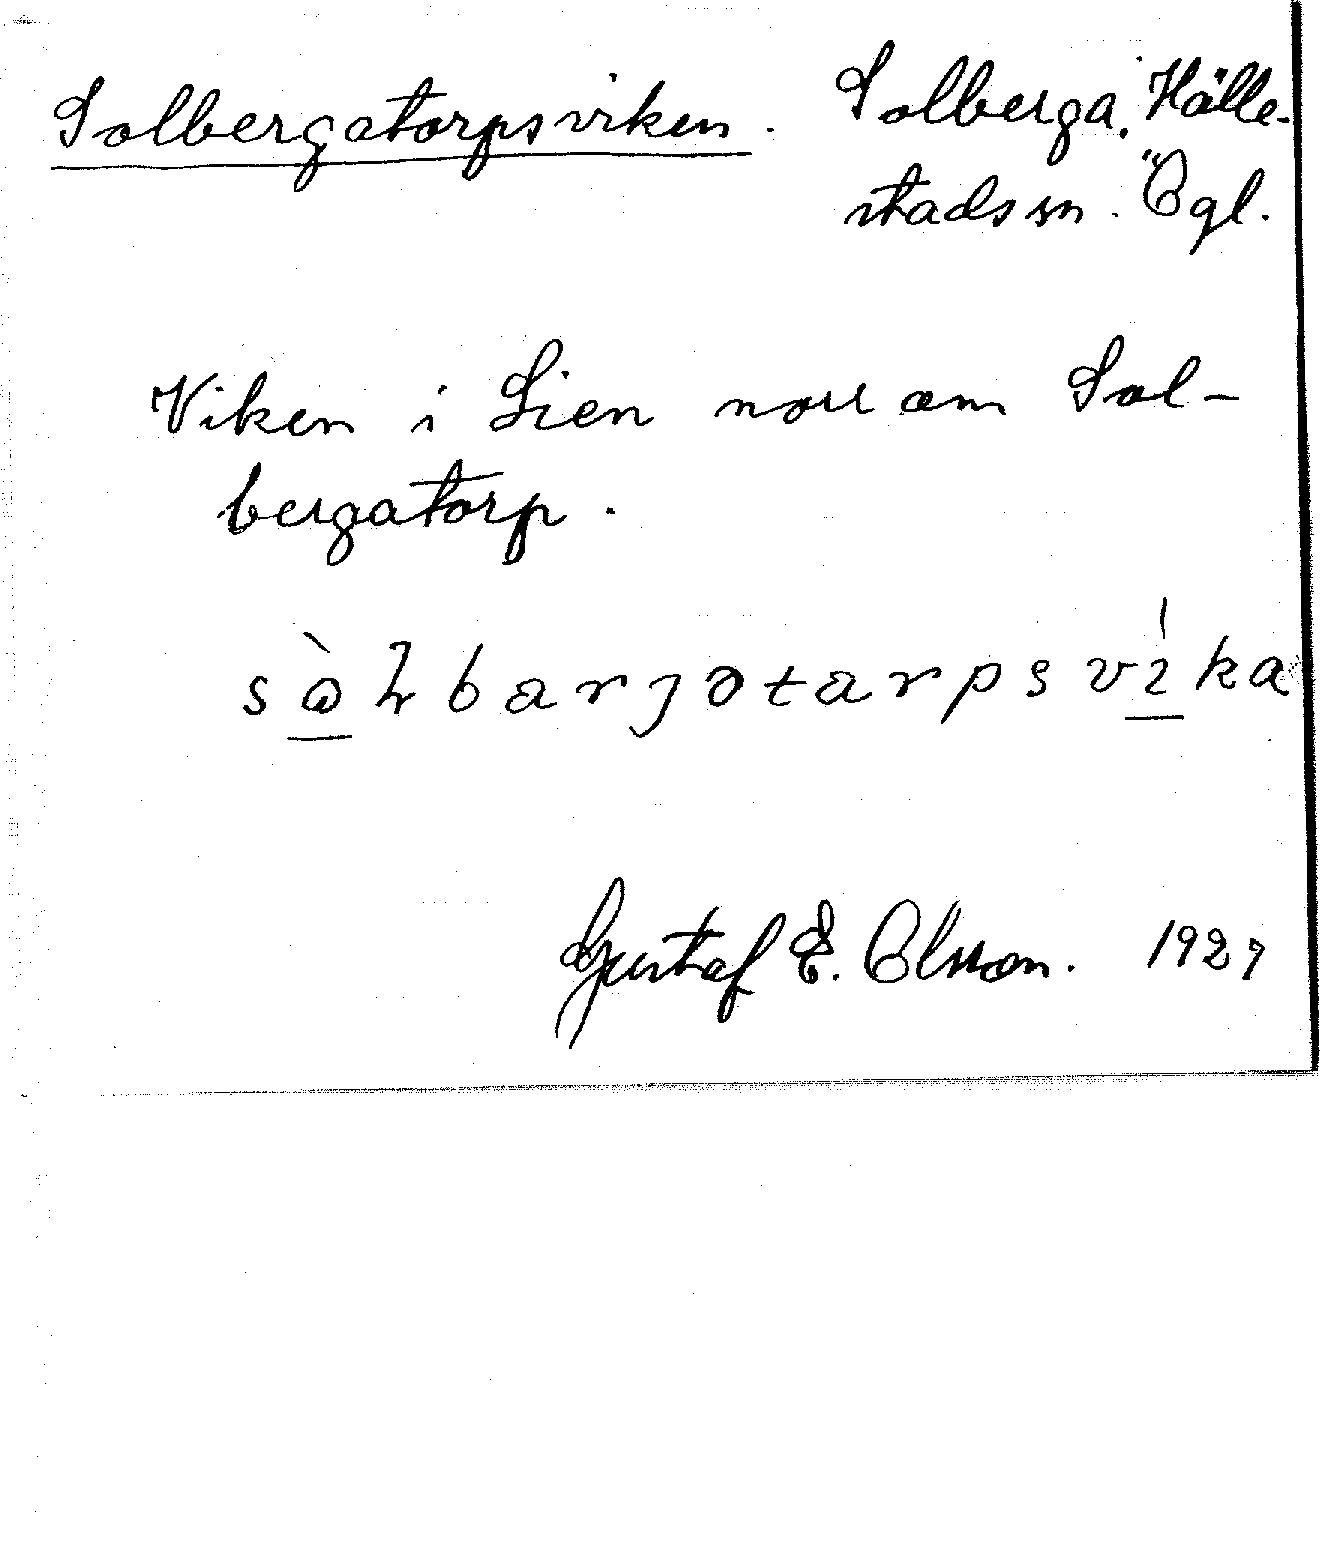 Solbergatorpsviken. Solberga, Hälle-
stads sn. Ögl.
Viken i Lien norr om Sol-
bergatorp.
Gustaf E. Olsson. 1927